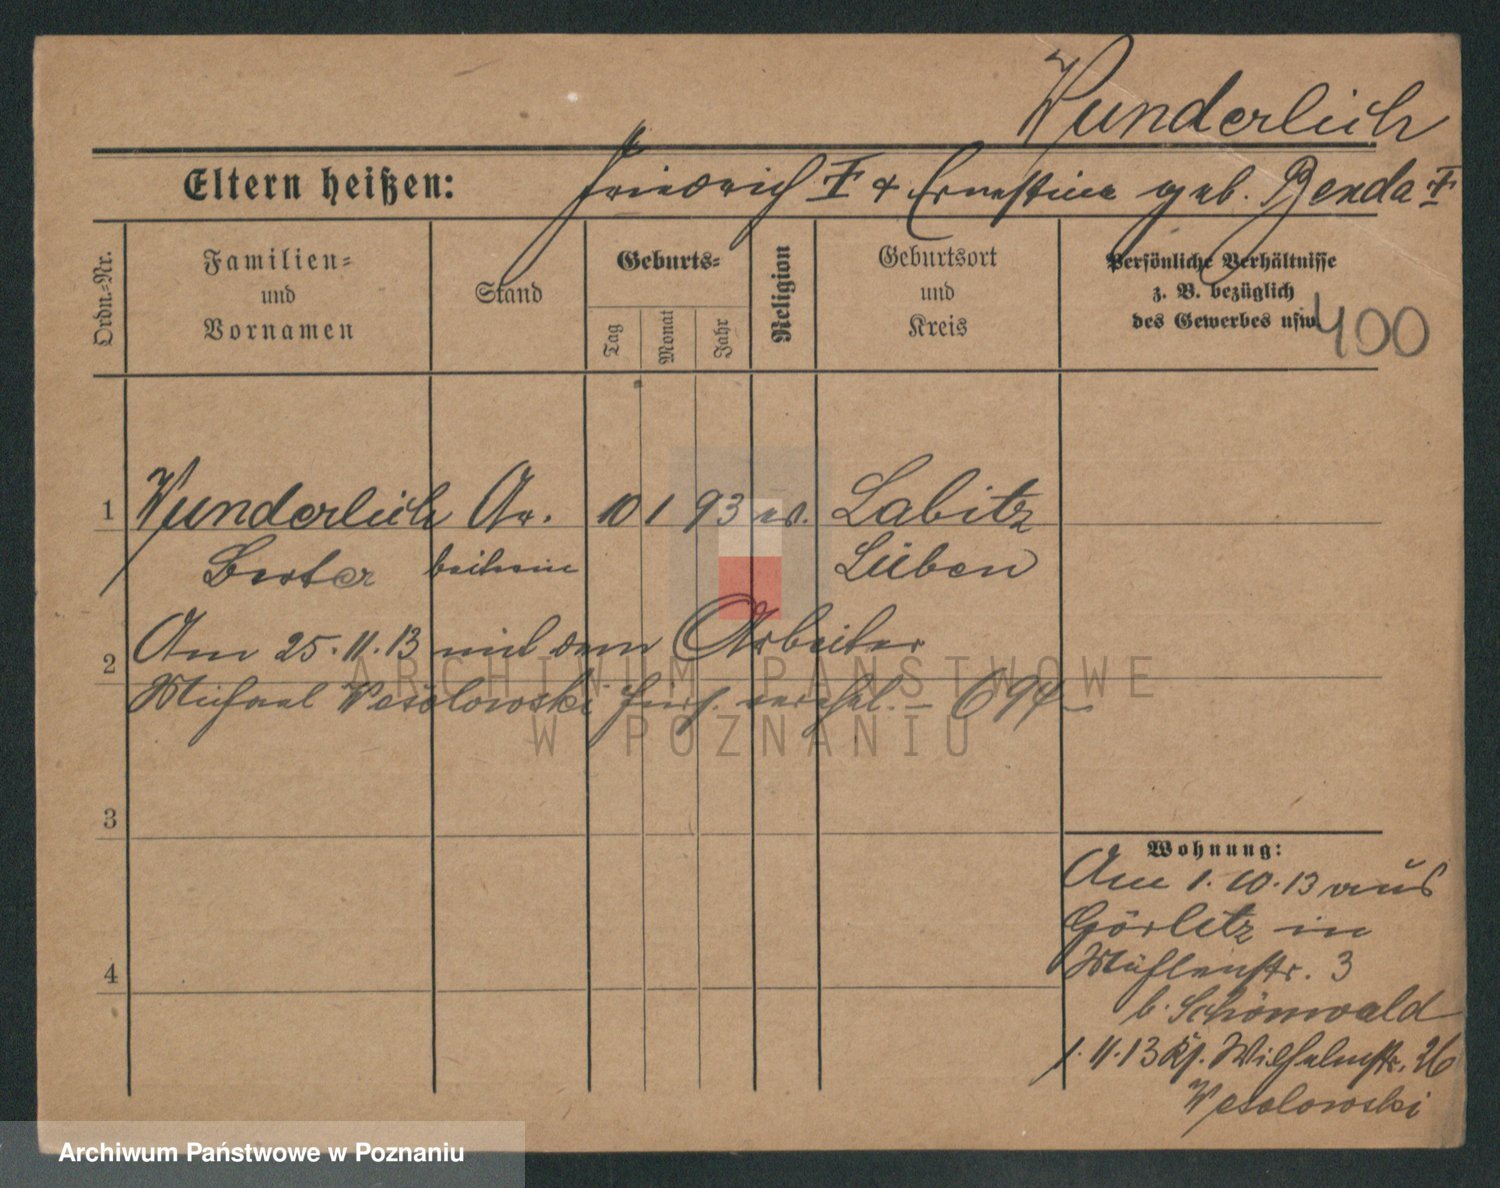 Wunderlich
Eltern heißen: Friedrich † & Ernestine geb. Benda †
Ordn.-Nr.
Familien-
und
Vornamen
Stand
Geburts-
Tag
Monat
Jahr
Religion
Geburtsort
und
Kreis
Persönliche Verhältnisse
z. B. bezüglich
des Gewerbes usw.
400
1 Wunderlich Ar. 10 1 93 ev. Labitz
beiterin Lüben
2 Am 25.11.13 mit dem Arbeiter
Michael Wesolowski hier verehel. – 694 –
3
4
Wohnung:
Am 1.10.13 aus
Görlitz in
Mühlenstr. 3
b. Schönwald
1.11.13 Wilhelmstr. 26
Wesolowski
ARCHIWUM PAŃSTWOWE
W POZNANIU
Archiwum Państwowe w Poznaniu